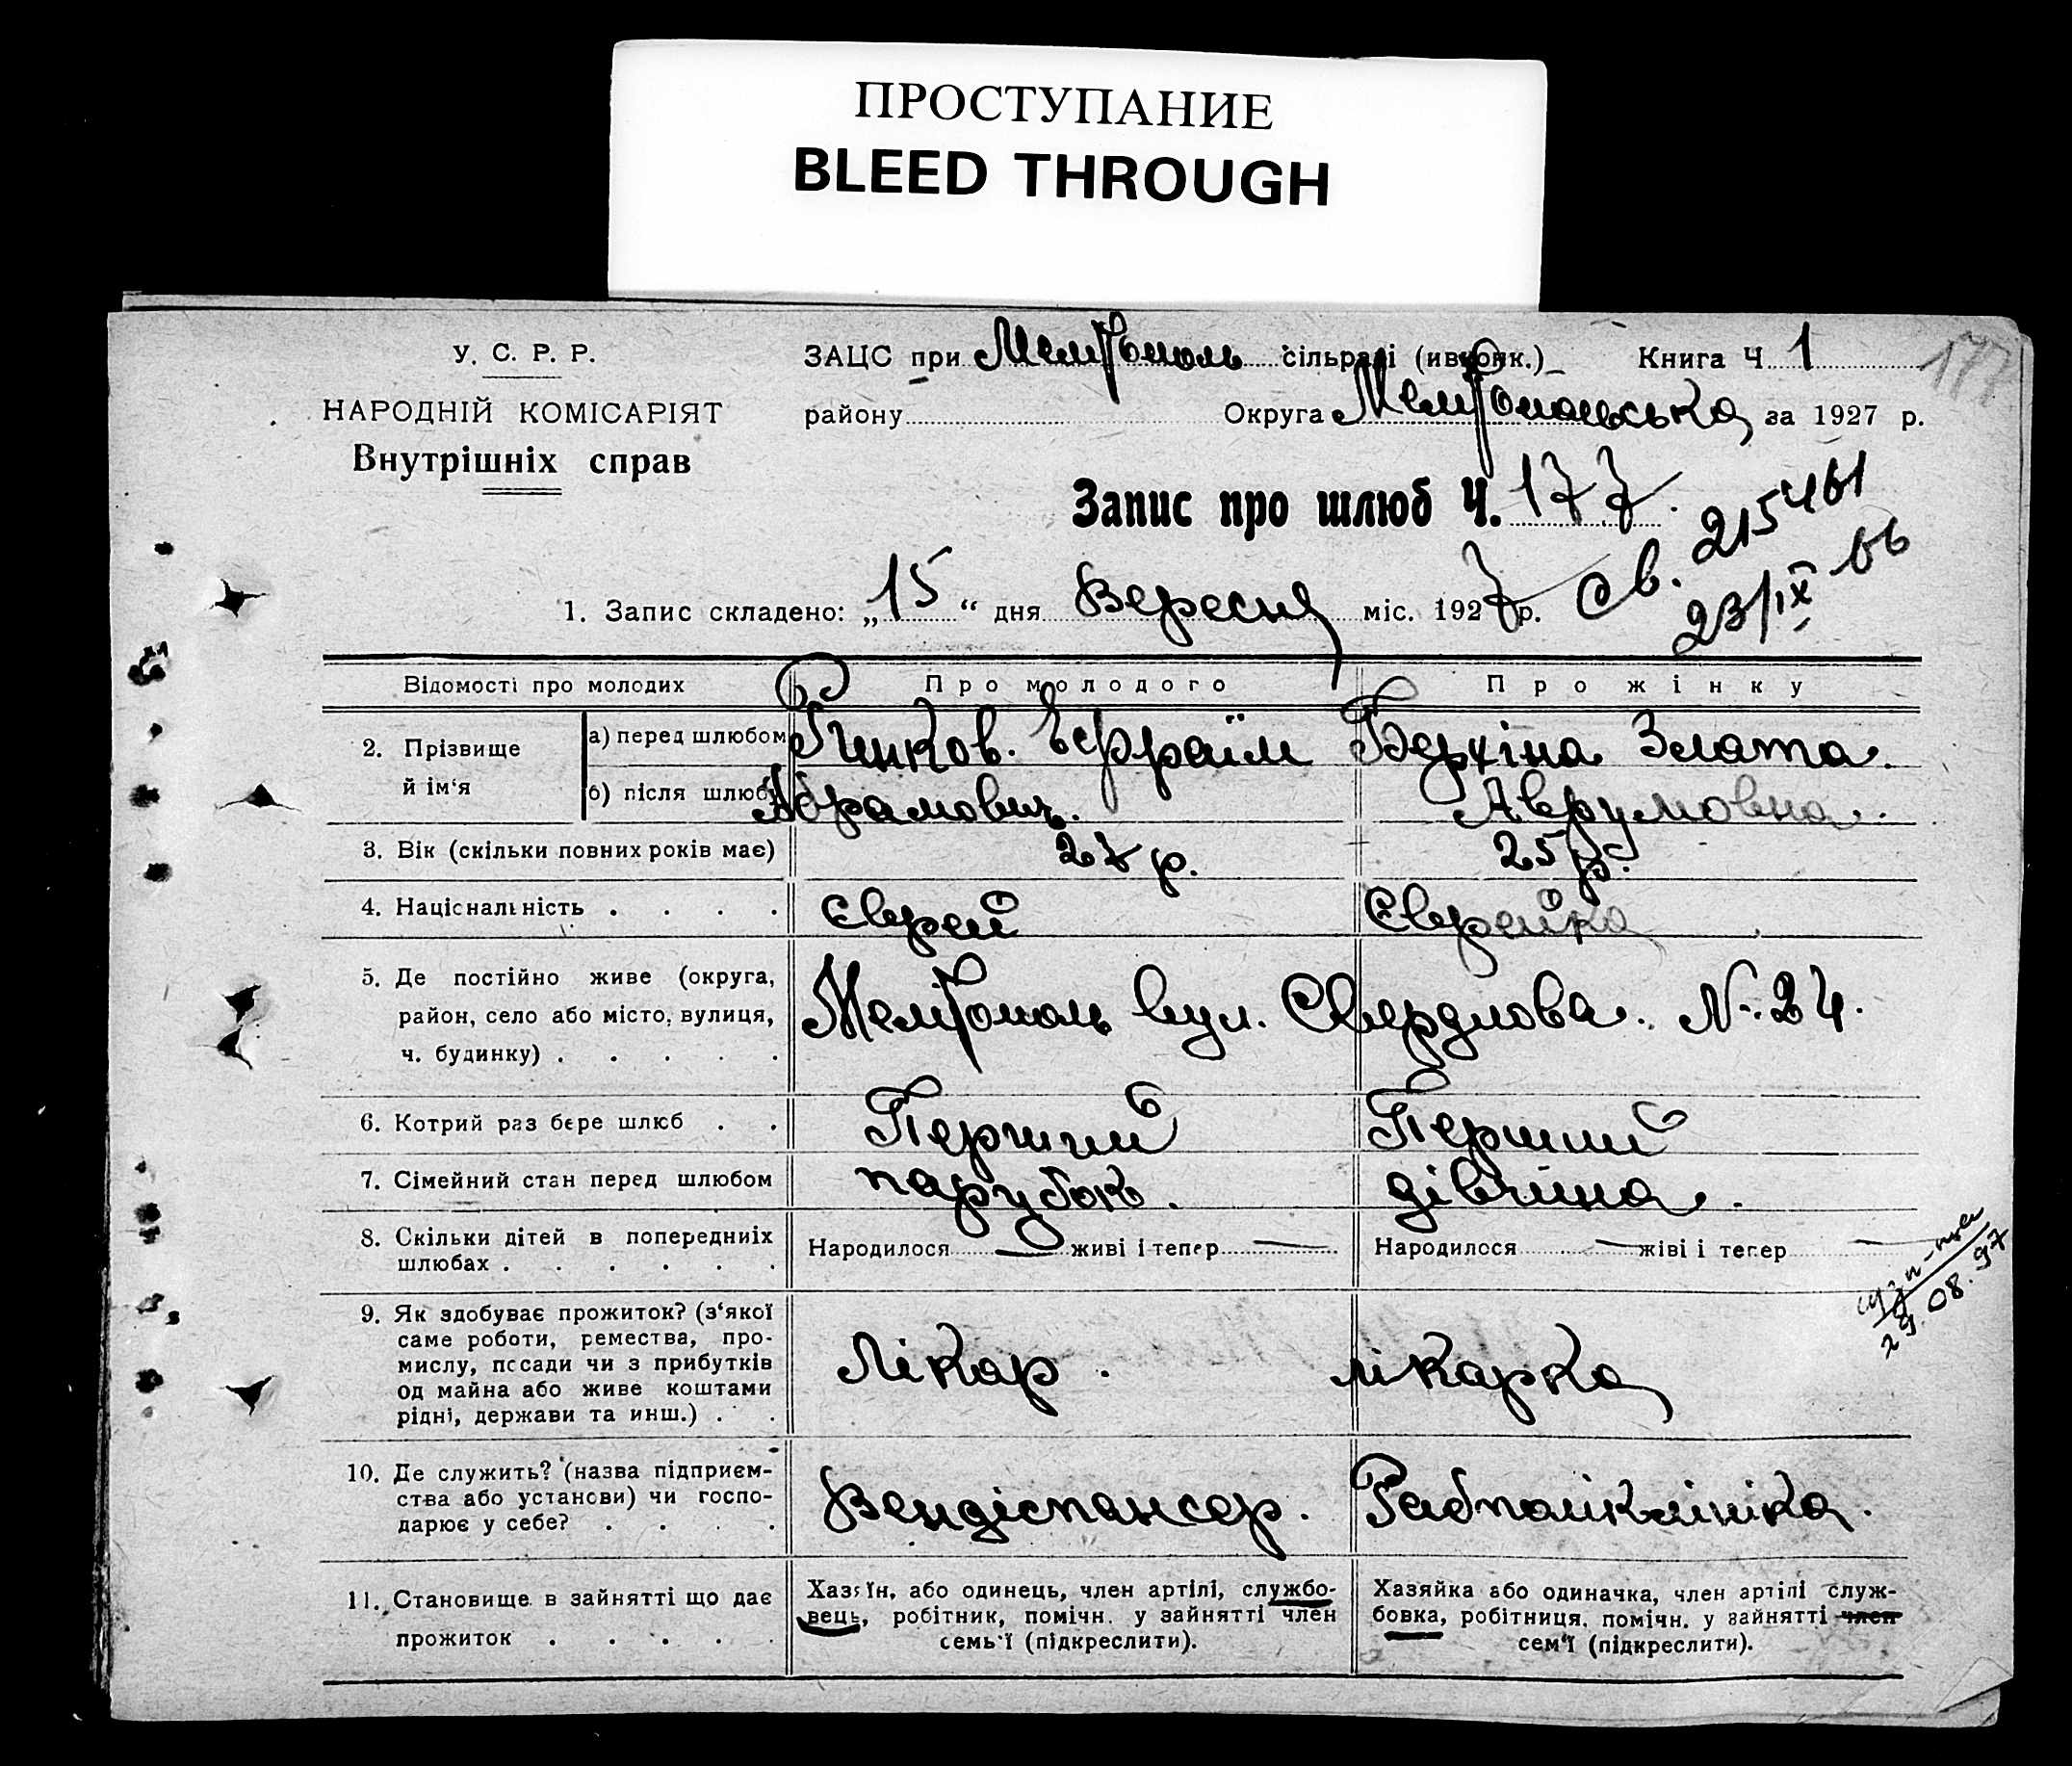 ПРОСТУПАНИЕ
BLEED THROUGH
У. С. Р. Р.
НАРОДНІЙ КОМІСАРІЯТ
Внутрішніх справ
ЗАЦС при Мелітополь сільраді Книга Ч 1
177
району Округа Мелітопольська за 1927 р.
Запис про шлюб Ч. 177.
св. 215461
23/IX 66
1. Запис складено: „15“ дня Вересня міс. 1927 р.
Відомості про молодих Про молодого Про жінку
2. Прізвище й ім'я
а) перед шлюбом Єфраїм Злата.
б) після шлюбу Абрамович. Аврумовна.
3. Вік (скільки повних років має) 27 р. 25 р.
4. Національність Єврей Єврейка
5. Де постійно живе (округа,
район, село або місто, вулиця,
ч. будинку)
Мелітополь вул. Свердлова. №24.
6. Котрий раз бере шлюб Перший Перший
7. Сімейний стан перед шлюбом парубок. дівчина.
8. Скільки дітей в попередніх
шлюбах
Народилося — живі і тепер — Народилося — жіві і тепер —
29.08.97
9. Як здобуває прожиток? (з'якої
саме роботи, ремества, про-
мислу, посади чи з прибутків
од майна або живе коштами
рідні, держави та инш.)
Лікар. лікарка
10. Де служить? (назва підприєм-
ства або установи) чи госпо-
дарює у себе?
Вендіспансер. Рабполіклініка.
11. Становище в зайнятті що дає
прожиток
Хазяїн, або одинець, член артілі, службо-
вець, робітник, помічн. у зайнятті член
семь'ї (підкреслити).
Хазяйка або одиначка, член артілі служ-
бовка, робітниця, помічн. у зайнятті член
сем'ї (підкреслити).